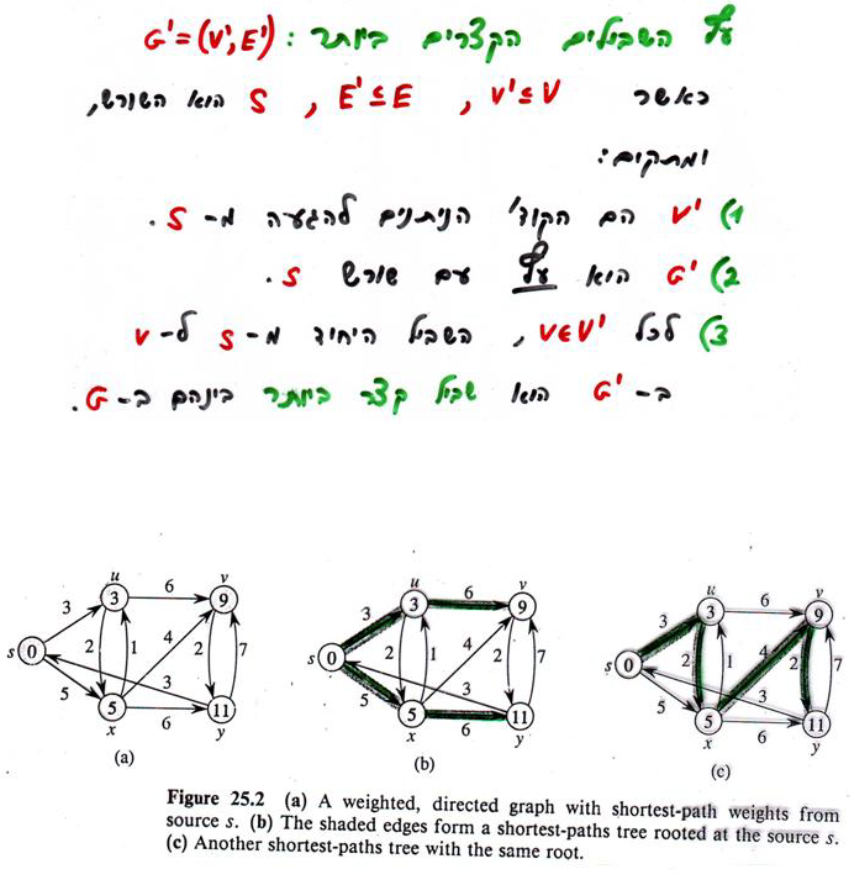 עץ השבילים הקצרים ביותר : G'=(V',E')
כאשר V'⊆V , E'⊆E , S הוא השורש,
ומתקים:
1) V' הם הקוד' הניתנים להגעה מ-S.
2) G' הוא עץ עם שורש S.
3) לכל V∈V' , השביל היחיד מ-S ל-V
ב-G' הוא שביל קצר ביותר בינהם ב-G.
u 6 v
3 3 9
s 0 2 1 4 2 7
5 3
5 6 11
x y
(a)
u 6 v
3 3 9
s 0 2 1 4 2 7
5 3
5 6 11
x y
(b)
u 6 v
3 3 9
s 0 2 1 4 2 7
5 3
5 6 11
x y
(c)
Figure 25.2 (a) A weighted, directed graph with shortest-path weights from
source s. (b) The shaded edges form a shortest-paths tree rooted at the source s.
(c) Another shortest-paths tree with the same root.